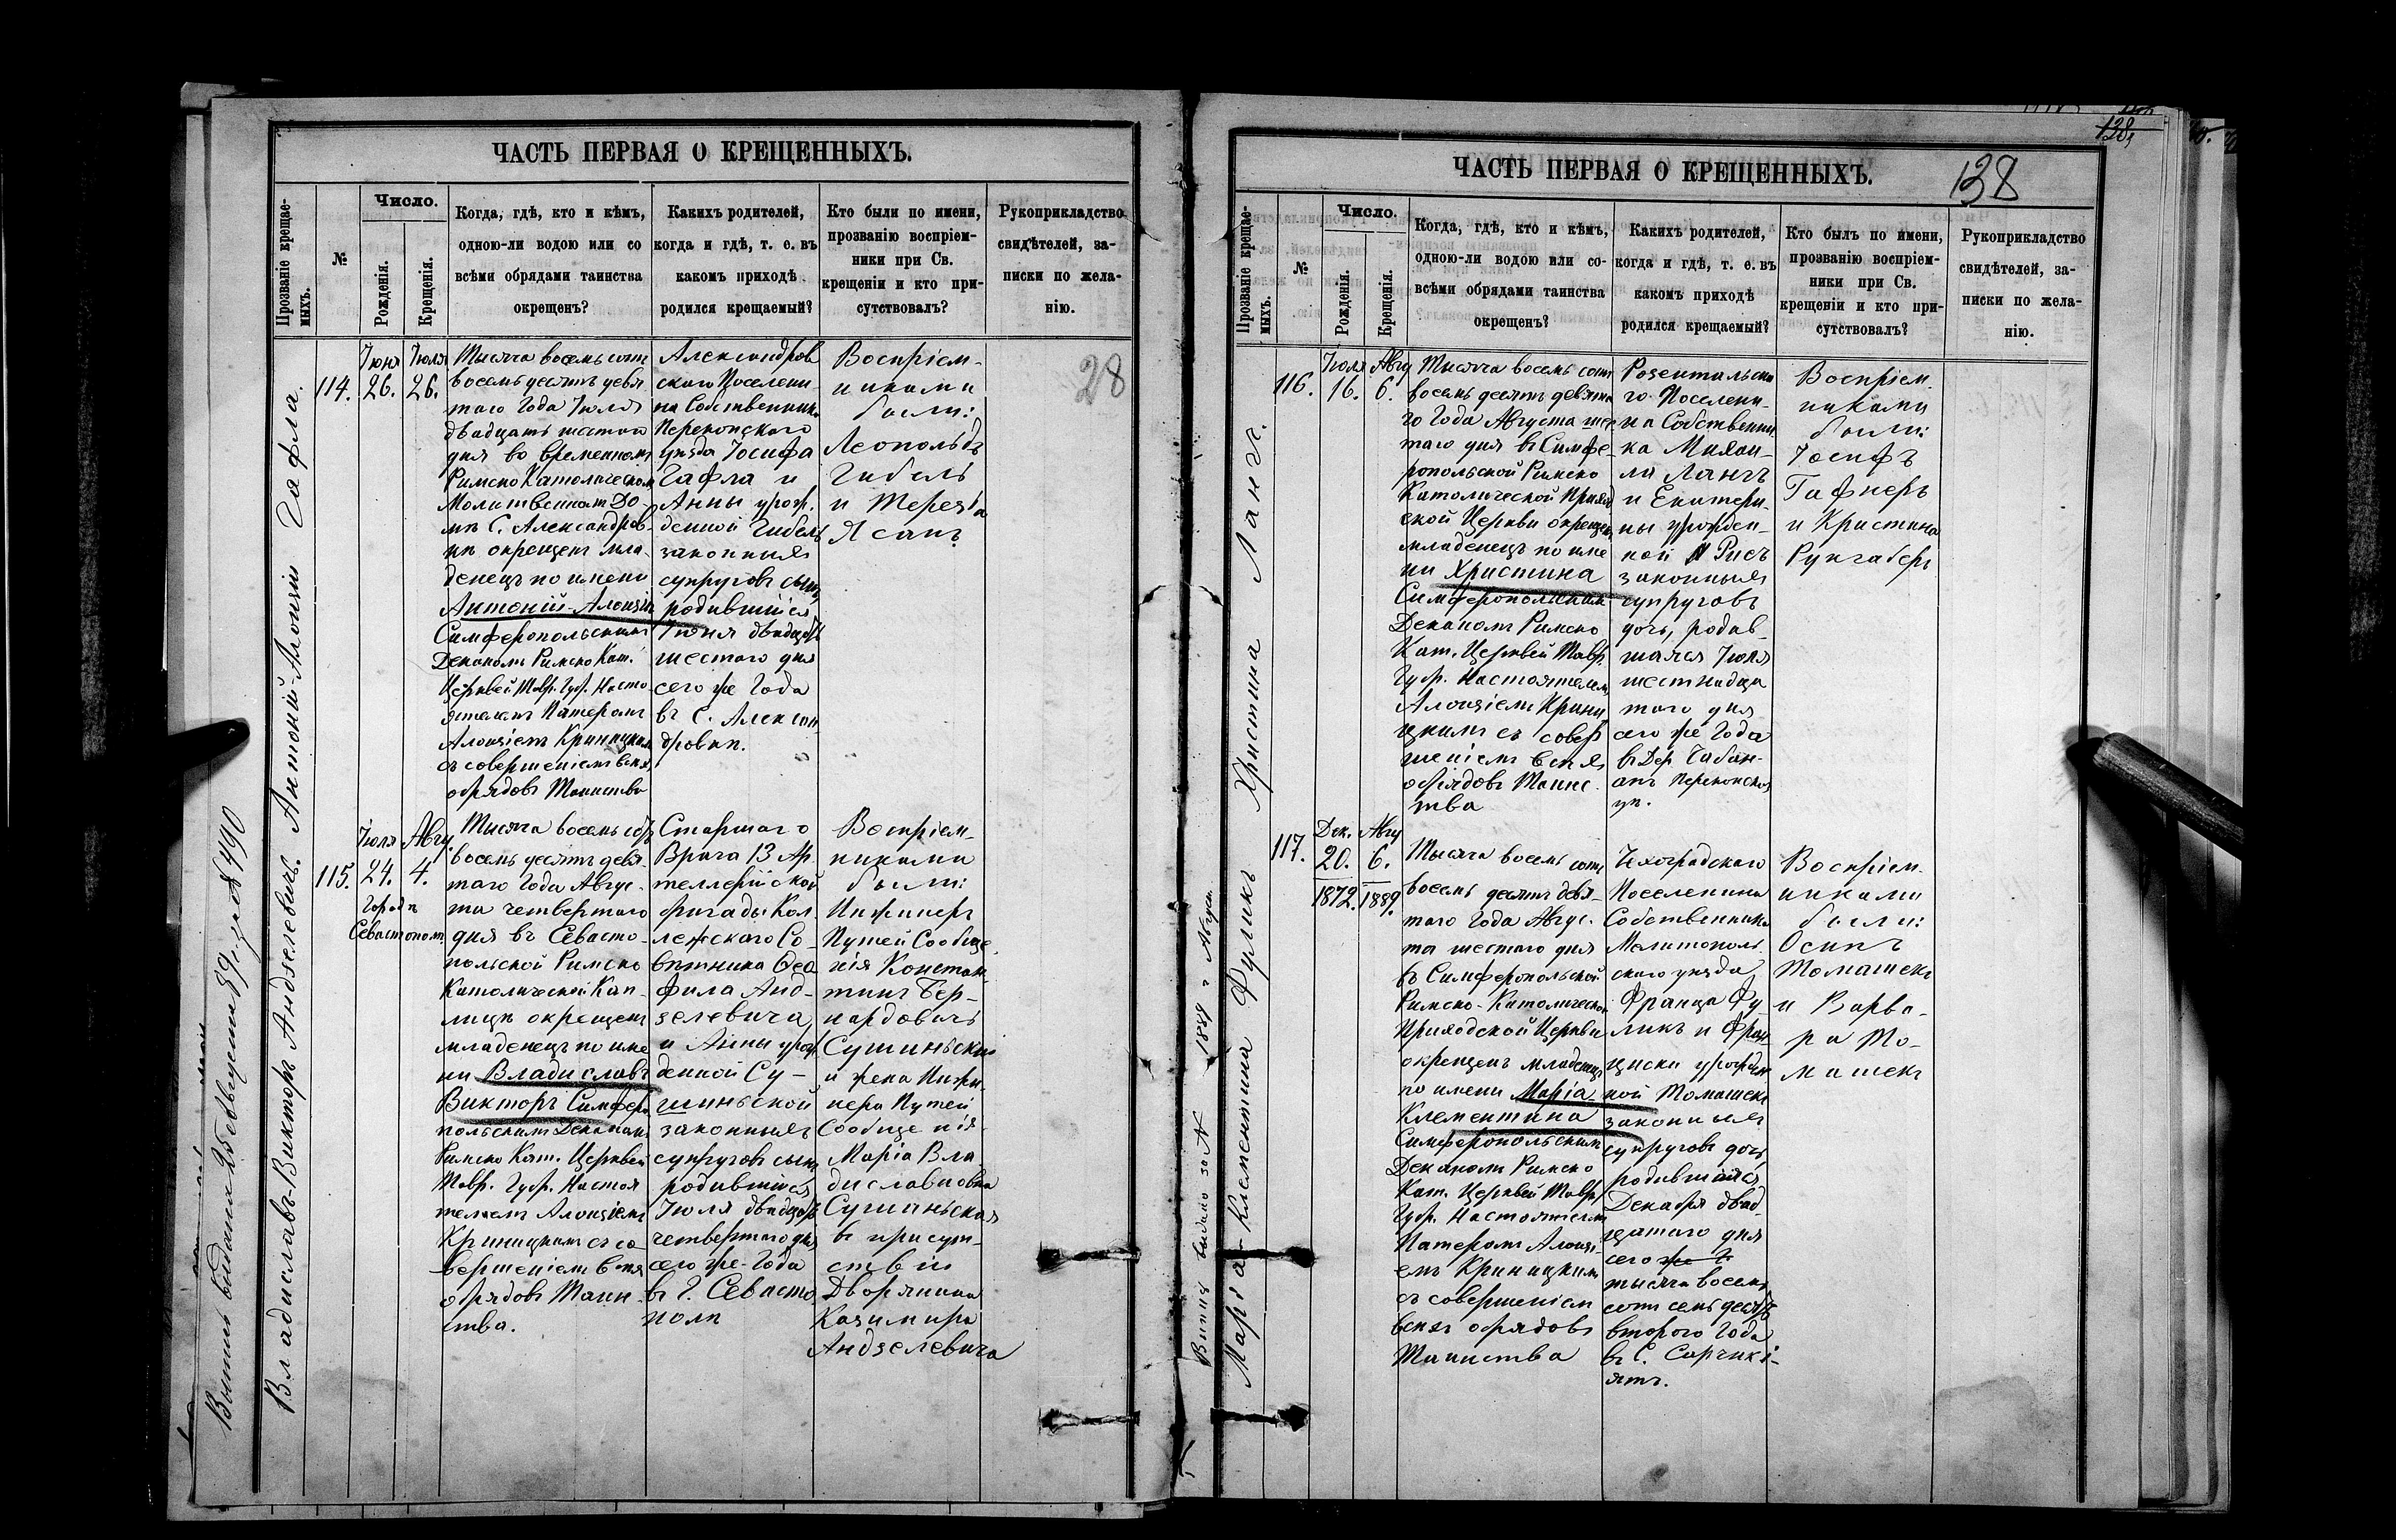 ЧАСТЬ ПЕРВАЯ О КРЕЩЕННЫХЪ.
Прозваніе крещае-
мыхъ.
№
Число.
Рожденія.
Крещенія.
Когда, гдѣ, кто и кѣмъ,
одною-ли водою или со
всѣми обрядами таинства
окрещенъ?
Какихъ родителей,
когда и гдѣ, т. е. въ
какомъ приходѣ
родился крещаемый?
Кто были по имени,
прозванію воспріем-
ники при Св.
крещеніи и кто при-
сутствовалъ?
Рукоприкладство
свидѣтелей, за-
писки по жела-
нію.
28
Антоній-Алоизій Гафла.
114.
Іюня
26.
Іюля
26.
Тысяча восемь сотъ
восемьдесятъ девя
таго Года Іюля
двадцать шестого
дня во временномъ
Римско Католическом
Молитвенномъ До
мѣ С. Александров-
кѣ окрещенъ мла-
денецъ по имени
Антоній-Алоизій
Симферопольскимъ
Деканомъ Римско Кат.
Церквей Тавр. Губ. Насто
ятелемъ Патеромъ
Алоизіемъ Криницкимъ
съ совершеніемъ всѣхъ
обрядовъ Таинства
Александров
скаго Поселени
на Собственника
Перекопскаго
уѣзда Іосифа
Гафла и
Анны урож.
денной Гибель
законныхъ
супруговъ сынъ,
родившійся
Іюня двадцать
шестаго дня
сего же Года
въ С. Алексан
дровкѣ.
Воспріем-
никами
были:
Леопольдъ
Гибель
и Терезіа
Ясанъ
Владиславъ-Викторъ Андзелевичъ.
115.
Іюля
24.
Городѣ
Севастополѣ
Авгу.
4.
Тысяча восемь сотъ
восемь десятъ девя
таго Года Авгус-
та четвертаго
дня въ Севасто-
польской Римско
Католической Кап-
лицѣ окрещенъ
младенецъ по име
ни Владиславъ
Викторъ Симферо
польскимъ Деканомъ
Римско Кат. Церквей
Тавр. Губ. Настоя
телемъ Алоизіемъ
Криницкимъ съ со
вершеніемъ всѣхъ
обрядовъ Таин-
ства.
Старшаго
Врача 13 Ар.
тиллерійской
бригады Кол.
лежскаго Со-
вѣтника Ѳео
фила Анд-
зелевича,
и Анны урож
денной Су-
шиньской
законныхъ
супруговъ сынъ
родившійся
Іюля двадцать
четвертаго дня
сего же Года
въ Г. Севасто
полѣ
Воспріем-
никами
были:
Инженеръ
Путей Сообще
нія Констан
тинъ Бер-
нардовичъ
Сушиньский
и жена Инже
нера Путей
Сообщенія
Марія Вла
диславовна
Сушиньская
въ присут-
ствіи
Дворянина
Казимира
Андзелевича
ЧАСТЬ ПЕРВАЯ О КРЕЩЕННЫХЪ.
138
Прозваніе крещае-
мыхъ.
№
Число.
Рожденія.
Крещенія.
Когда, гдѣ, кто и кѣмъ,
одною-ли водою или со-
всѣми обрядами таинства
окрещенъ?
Какихъ родителей,
когда и гдѣ, т. е. въ
какомъ приходѣ
родился крещаемый?
Кто былъ по имени,
прозванію воспріем-
ники при Св.
крещеніи и кто при-
сутствовалъ?
Рукоприкладство
свидѣтелей, за-
писки по жела-
нію.
Христина Лангъ.
116.
Іюля
16.
Авгу
6.
Тысяча восемь сотъ
восемь десятъ девята
го Года Августа шес
таго дня въ Симфе
ропольской Римско
Католической Приход
ской Церкви окрещенъ
младенецъ по име
ни Христина
Симферопольскимъ
Деканомъ Римско
Кат. Церквей Тавр.
Губ. Настоятелемъ
Алоизіемъ Криниц
кимъ съ совер
шеніемъ всѣхъ
обрядовъ Таинс
тва
Розентальска
го Поселени-
на Собственни
ка Михаи-
ла Лангъ
и Екатери-
ны урожден-
ной Рисъ
законныхъ
супруговъ
дочь, родив-
шаяся Іюля
шестнадца
таго дня
сего же Года
въ Дер. Чабан-
ахъ Перекопскаго
уѣ.
Воспріем.
никами
были:
Іосифъ
Гафнеръ
и Христина
Рунгаберъ
Марія-Клементина Фуликъ
117.
Дек.
20.
1872.
Авгу
6.
1889.
Тысяча восемь сотъ
восемь десятъ девя-
таго Года Авгус-
та шестаго дня
въ Симферопольской
Римско-Католической
Приходской Церкви
окрещенъ младенецъ
по имени Марія
Клементина
Симферопольскимъ
Деканомъ Римско
Кат. Церквей Тавр.
Губ. Настоятелемъ
Патеромъ Алоизі-
емъ Криницкимъ
съ совершеніем
всѣхъ обрядовъ
Таинства
Чехоградскаго
Поселенина
Собственника
Мелитополь
скаго уѣзда
Франца Фу
ликъ и Фран
циски урожден
ной Томашекъ
законныхъ
супруговъ дочь
родившаяся
Декабря двад
цатаго дня
сего же Г
тысяча восемь
сотъ семьдесятъ
второго Года
въ С. Сарчикі-
ятъ.
Воспріем.
никами
были:
Осипъ
Томашекъ
и Варва-
ра То-
машекъ